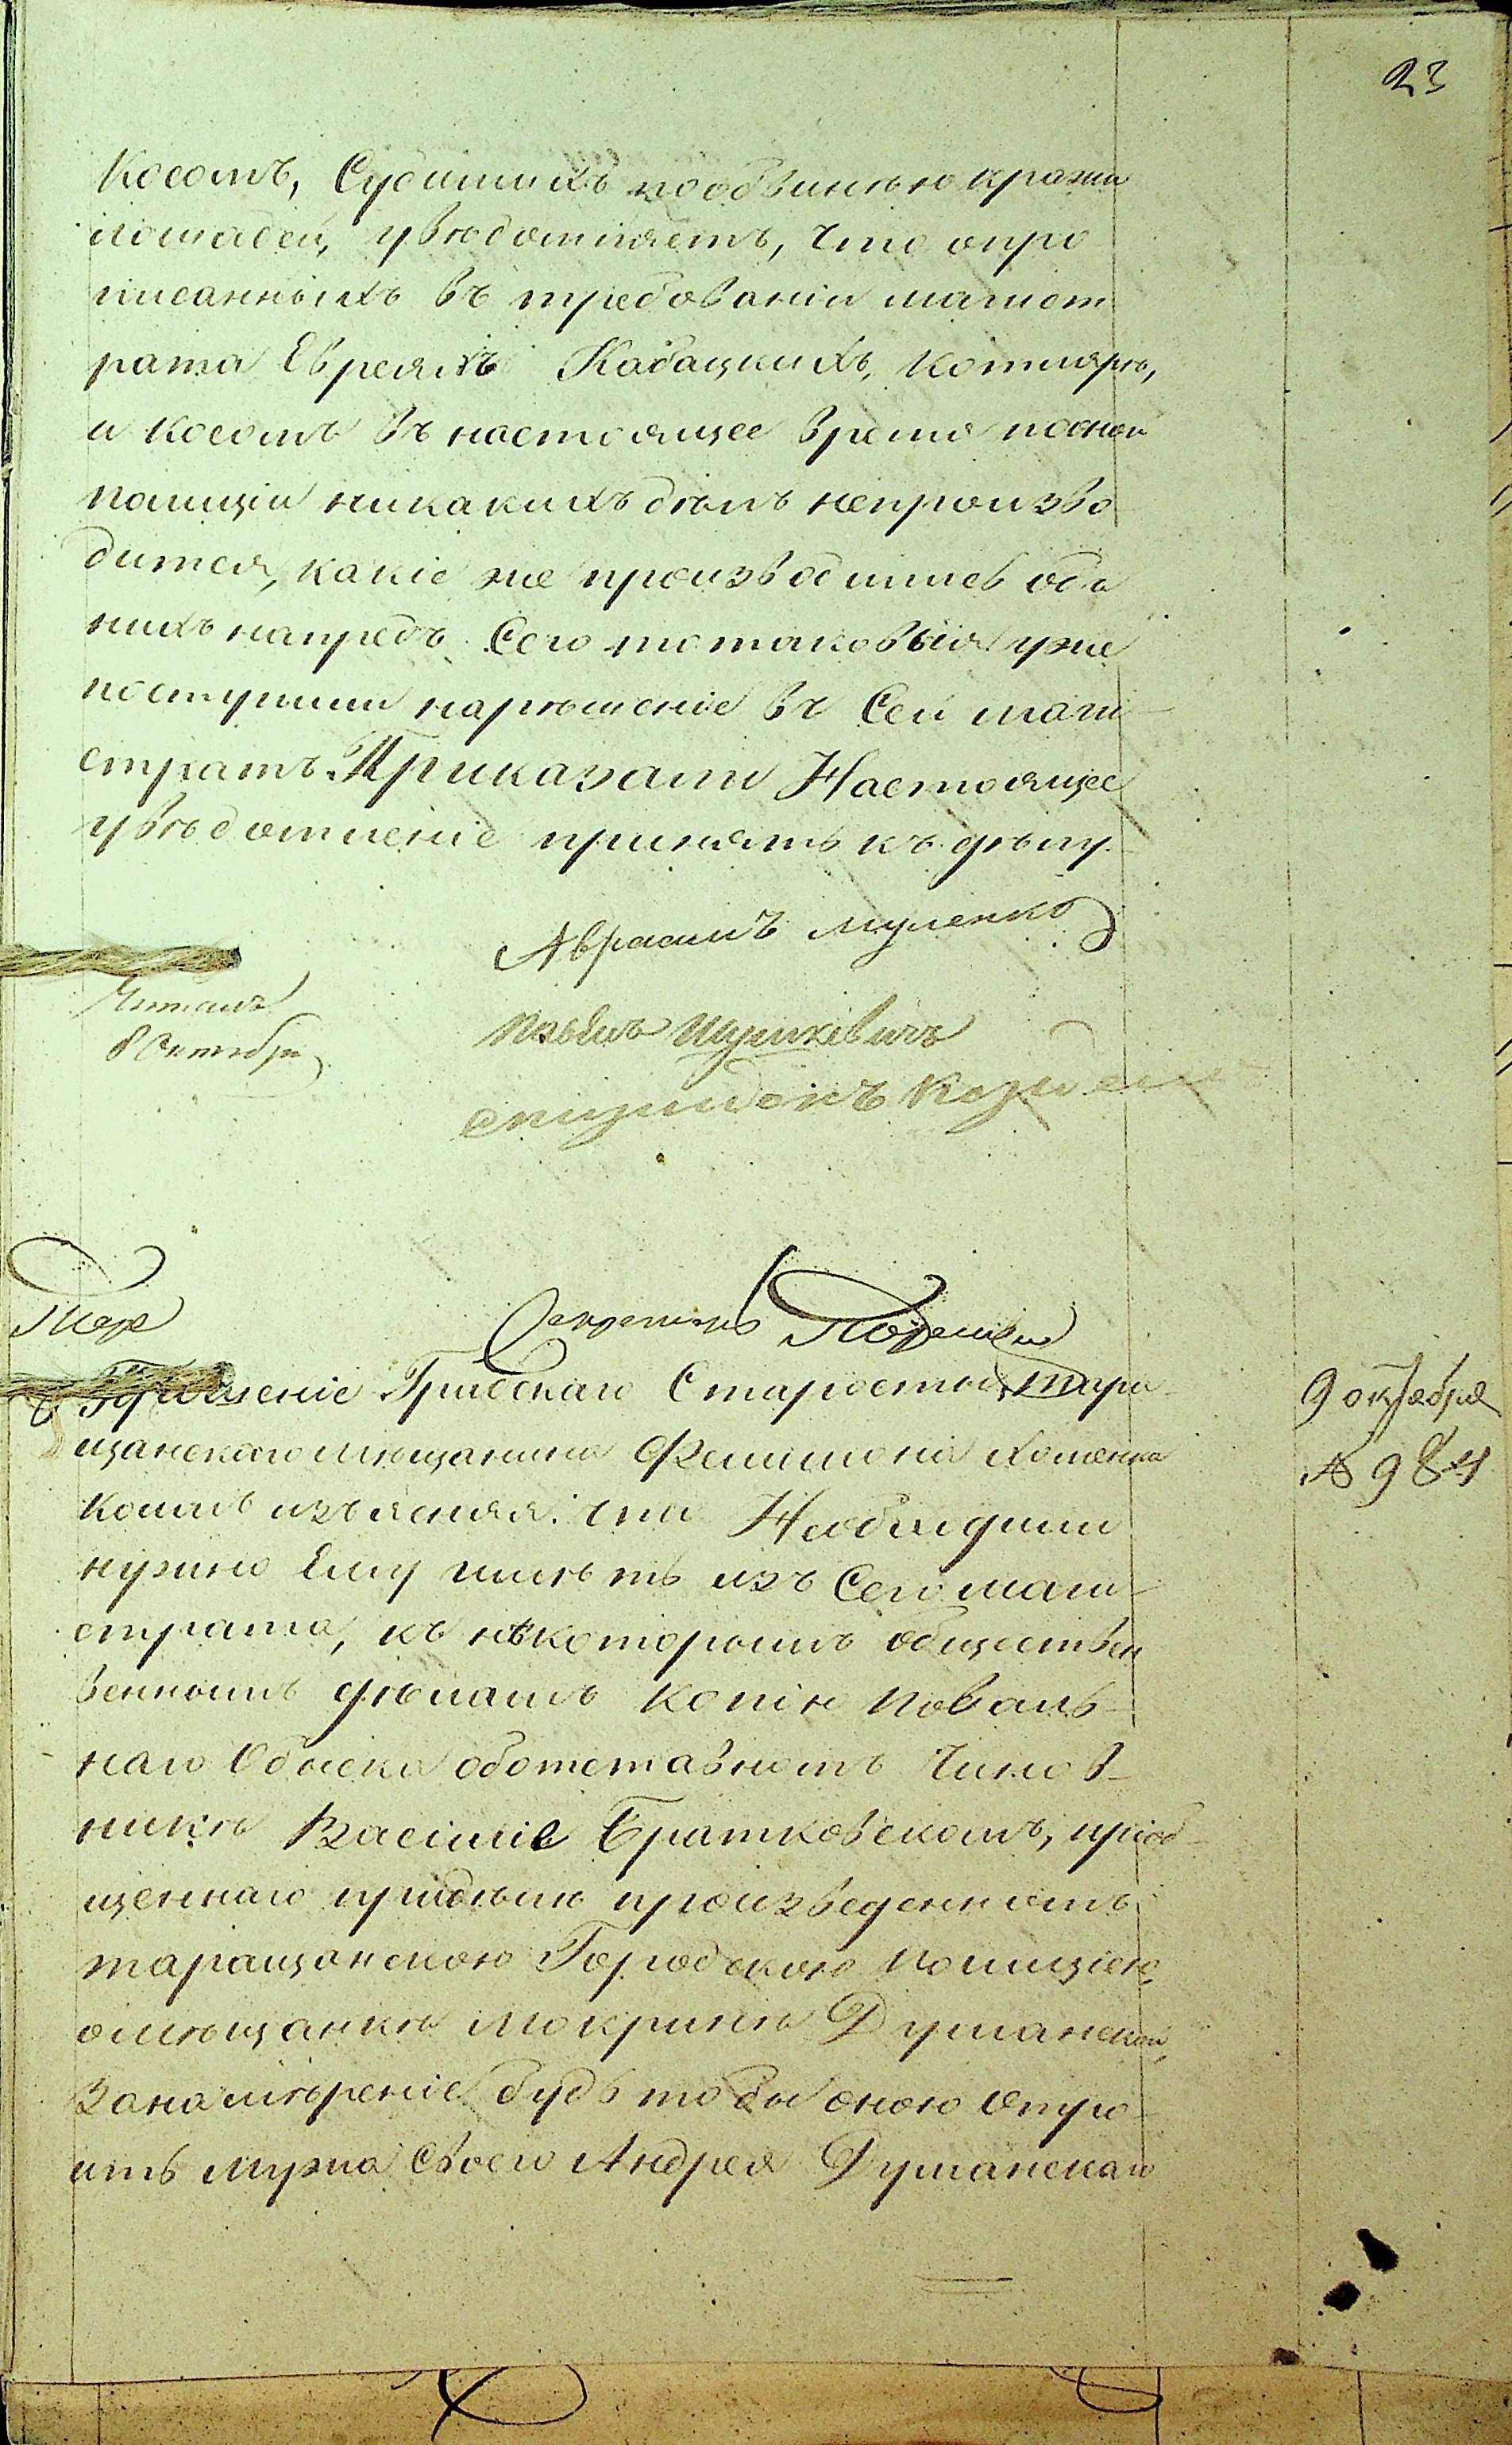 23
Косомъ, Судимыхъ пообвинению кражи
лошадей, увѣдомляетъ, что опро
писанныхъ въ требованіи магист
рата Евреяхъ Кабацкихъ, Котлярѣ,
и Косомъ въ настоящее время пооной
полиціи никакихъ дѣлъ непроизво
дится, какіе же производились обо
нихъ напредъ Сего тотаковыя уже
поступили нарѣшеніе въ Сей маги
стратъ. Приказали Настоящее
увѣдомленіе принять къ дѣлу.
Авраамъ
Читалъ
8 Октября
Секретарь
Прошеніе Грибскаго Старосты, Тара
щанскаго мѣщанина Филимона Хоменка
коимъ изъясняя: что Необходимо
нужно Ему имѣть изъ Сего маги
страта, къ нѣкоторымъ обществен
веннымъ дѣламъ копію поваль
наго Обыска оботставномъ Чинов
никѣ Василіе Братковскомъ, пріоб
щеннаго придѣлѣ произведенномъ
таращанскою Городскою полиціею,
омѣщанкѣ Мокринѣ Думанской,
Занамѣреніе будь то бы оною отро
ить мужа Своего Андрея Думанскаго
9 октября
№ 984